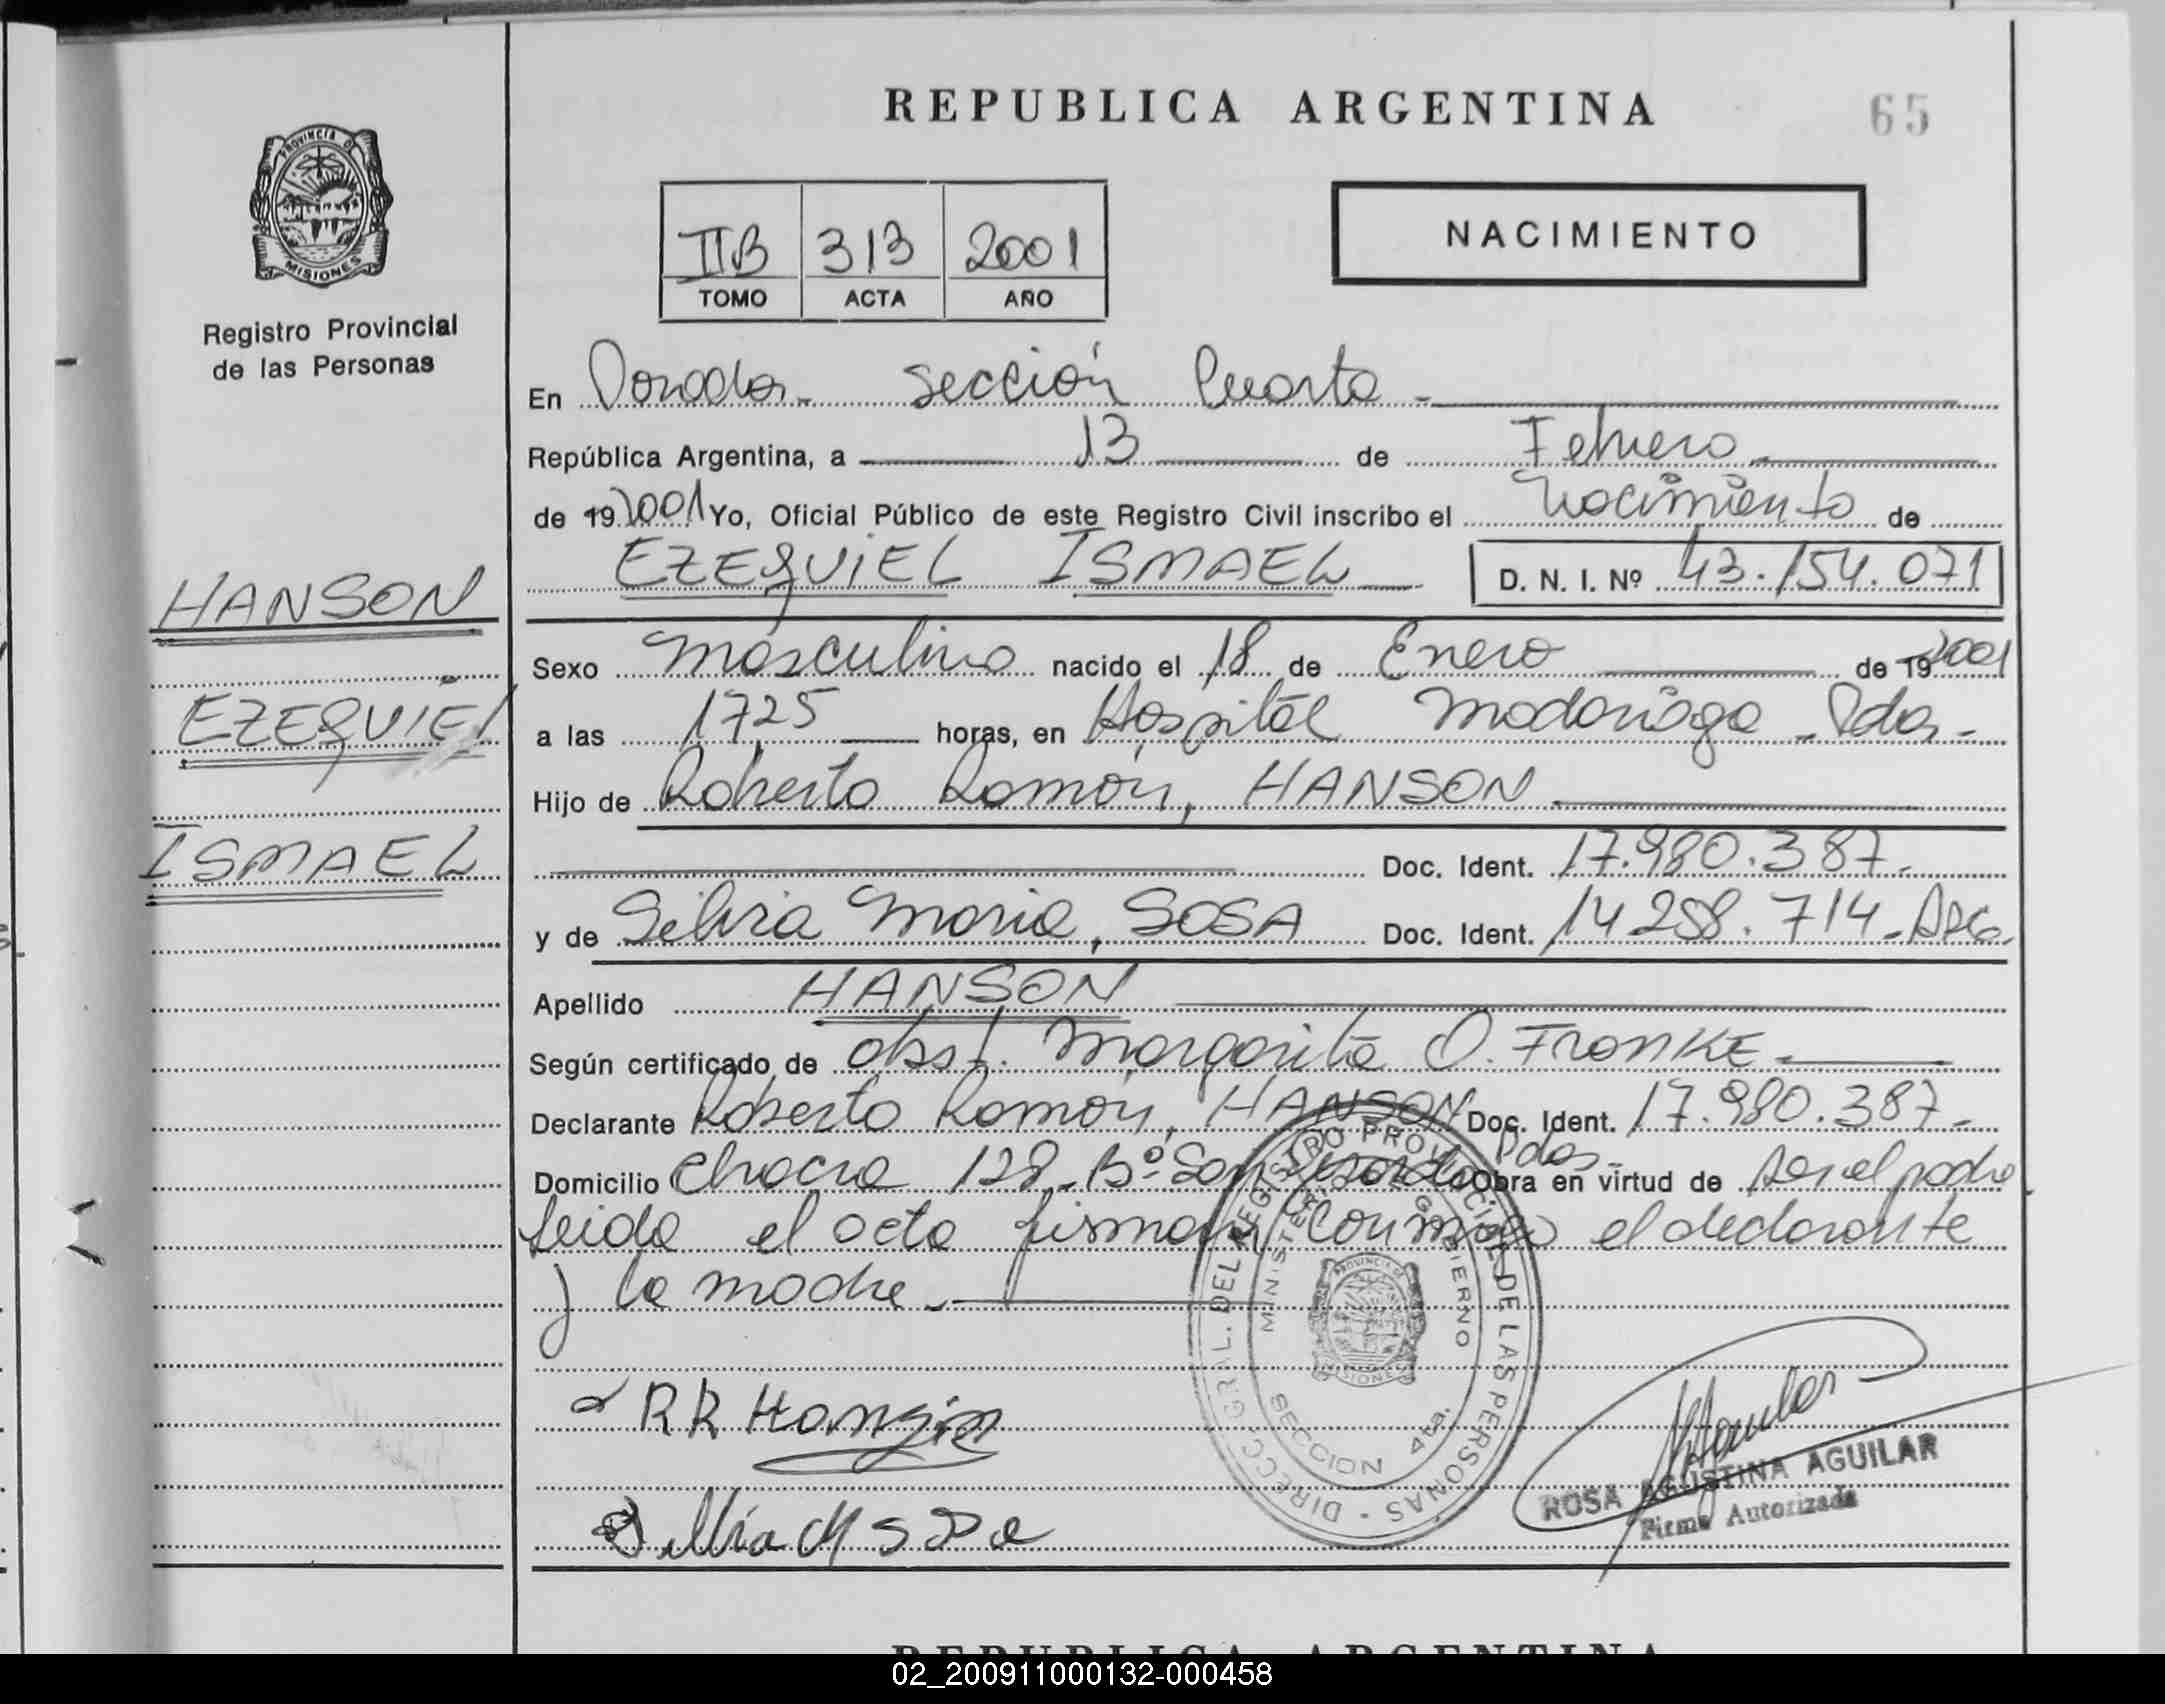 REPUBLICA ARGENTINA
65
PROVINCIA DE
MISIONES
Registro Provincial
de las Personas
IIB 313 2001
TOMO ACTA AÑO
NACIMIENTO
En Posadas - sección Cuarta -
República Argentina, a 13 de Febrero
de 19 2001 Yo, Oficial Público de este Registro Civil inscribo el Nacimiento de
EZEQUIEL ISMAEL D. N. I. Nº 43.154.071
HANSON
EZEQUIEL
ISMAEL
Sexo masculino nacido el 18 de Enero de 19 2001
a las 1725 horas, en Hospital Madariaga - Pdas -
Hijo de Roberto Ramón, HANSON
Doc. Ident. 17.980.387.-
y de Silvia Maria, SOSA Doc. Ident. 14.258.714-Arg.
Apellido HANSON
Según certificado de obst. Margarita O. Franke -
Declarante Roberto Ramón, HANSON Doc. Ident. 17.980.387-
Domicilio Chacra 128 - Bº San Pdas - Obra en virtud de ser el padre
leida el acta firman conmigo el declarante
y la madre.-
DIRECC. GRAL. DEL REGISTRO PROVINCIAL DE LAS PERSONAS -
MINISTERIO DE GOBIERNO
SECCION 4ta.
RR Hanson
Silvia M Sosa
ROSA AGUSTINA AGUILAR
Firma Autorizada
REPUBLICA ARGENTINA
02_200911000132-000458